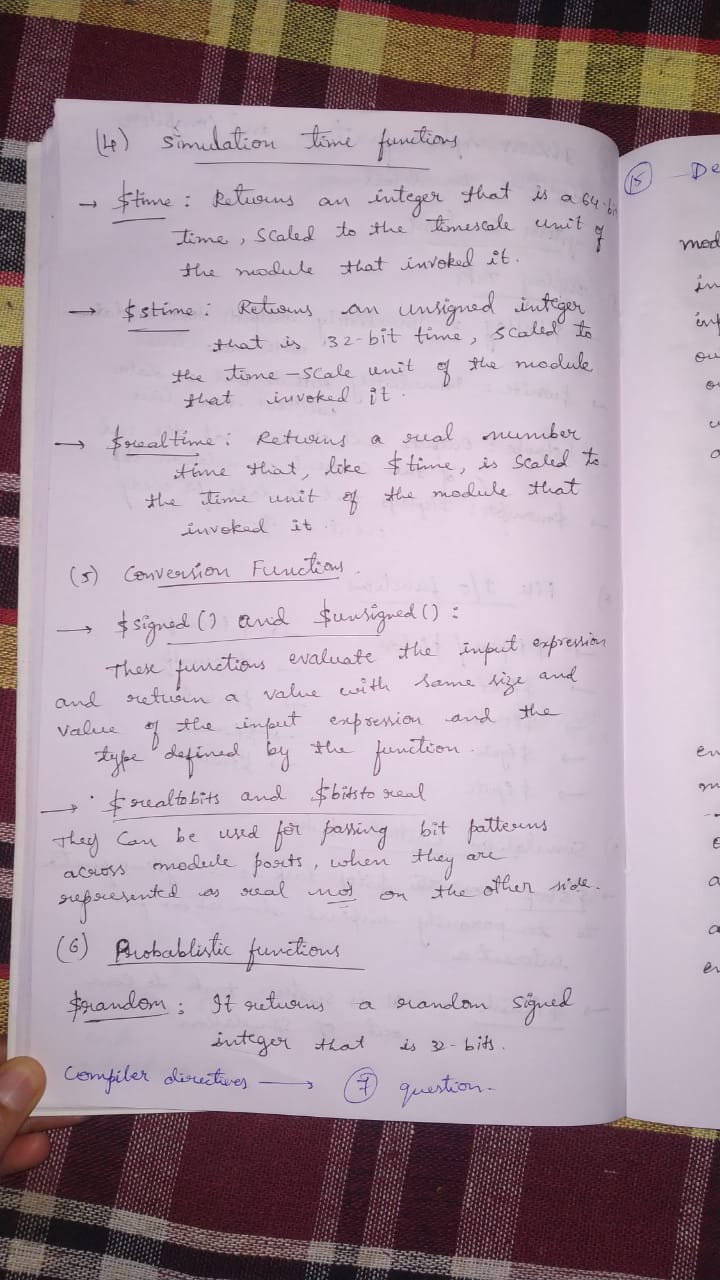 (4) Simulation time functions
→ $time : Returns an integer that is a 64-bit
time, scaled to the timescale unit of
the module that invoked it.
→ $stime : Returns an unsigned integer
that is 32-bit time, scaled to
the time-scale unit of the module
that invoked it.
→ $realtime : Returns a real number
time that, like $time, is scaled to
the time unit of the module that
invoked it.
(5) Conversion Functions.
→ $signed() and $unsigned() :
These functions evaluate the input expression
and return a value with same size and
value of the input expression and the
type defined by the function.
→ $realtobits and $bitstoreal
They can be used for passing bit patterns
across module ports, when they are
represented as real nos on the other side.
(6) Probablistic functions
$random : It returns a random signed
integer that is 32-bits.
Compiler directives → (7) question.
(15) De
med
in
ou
a
a
en